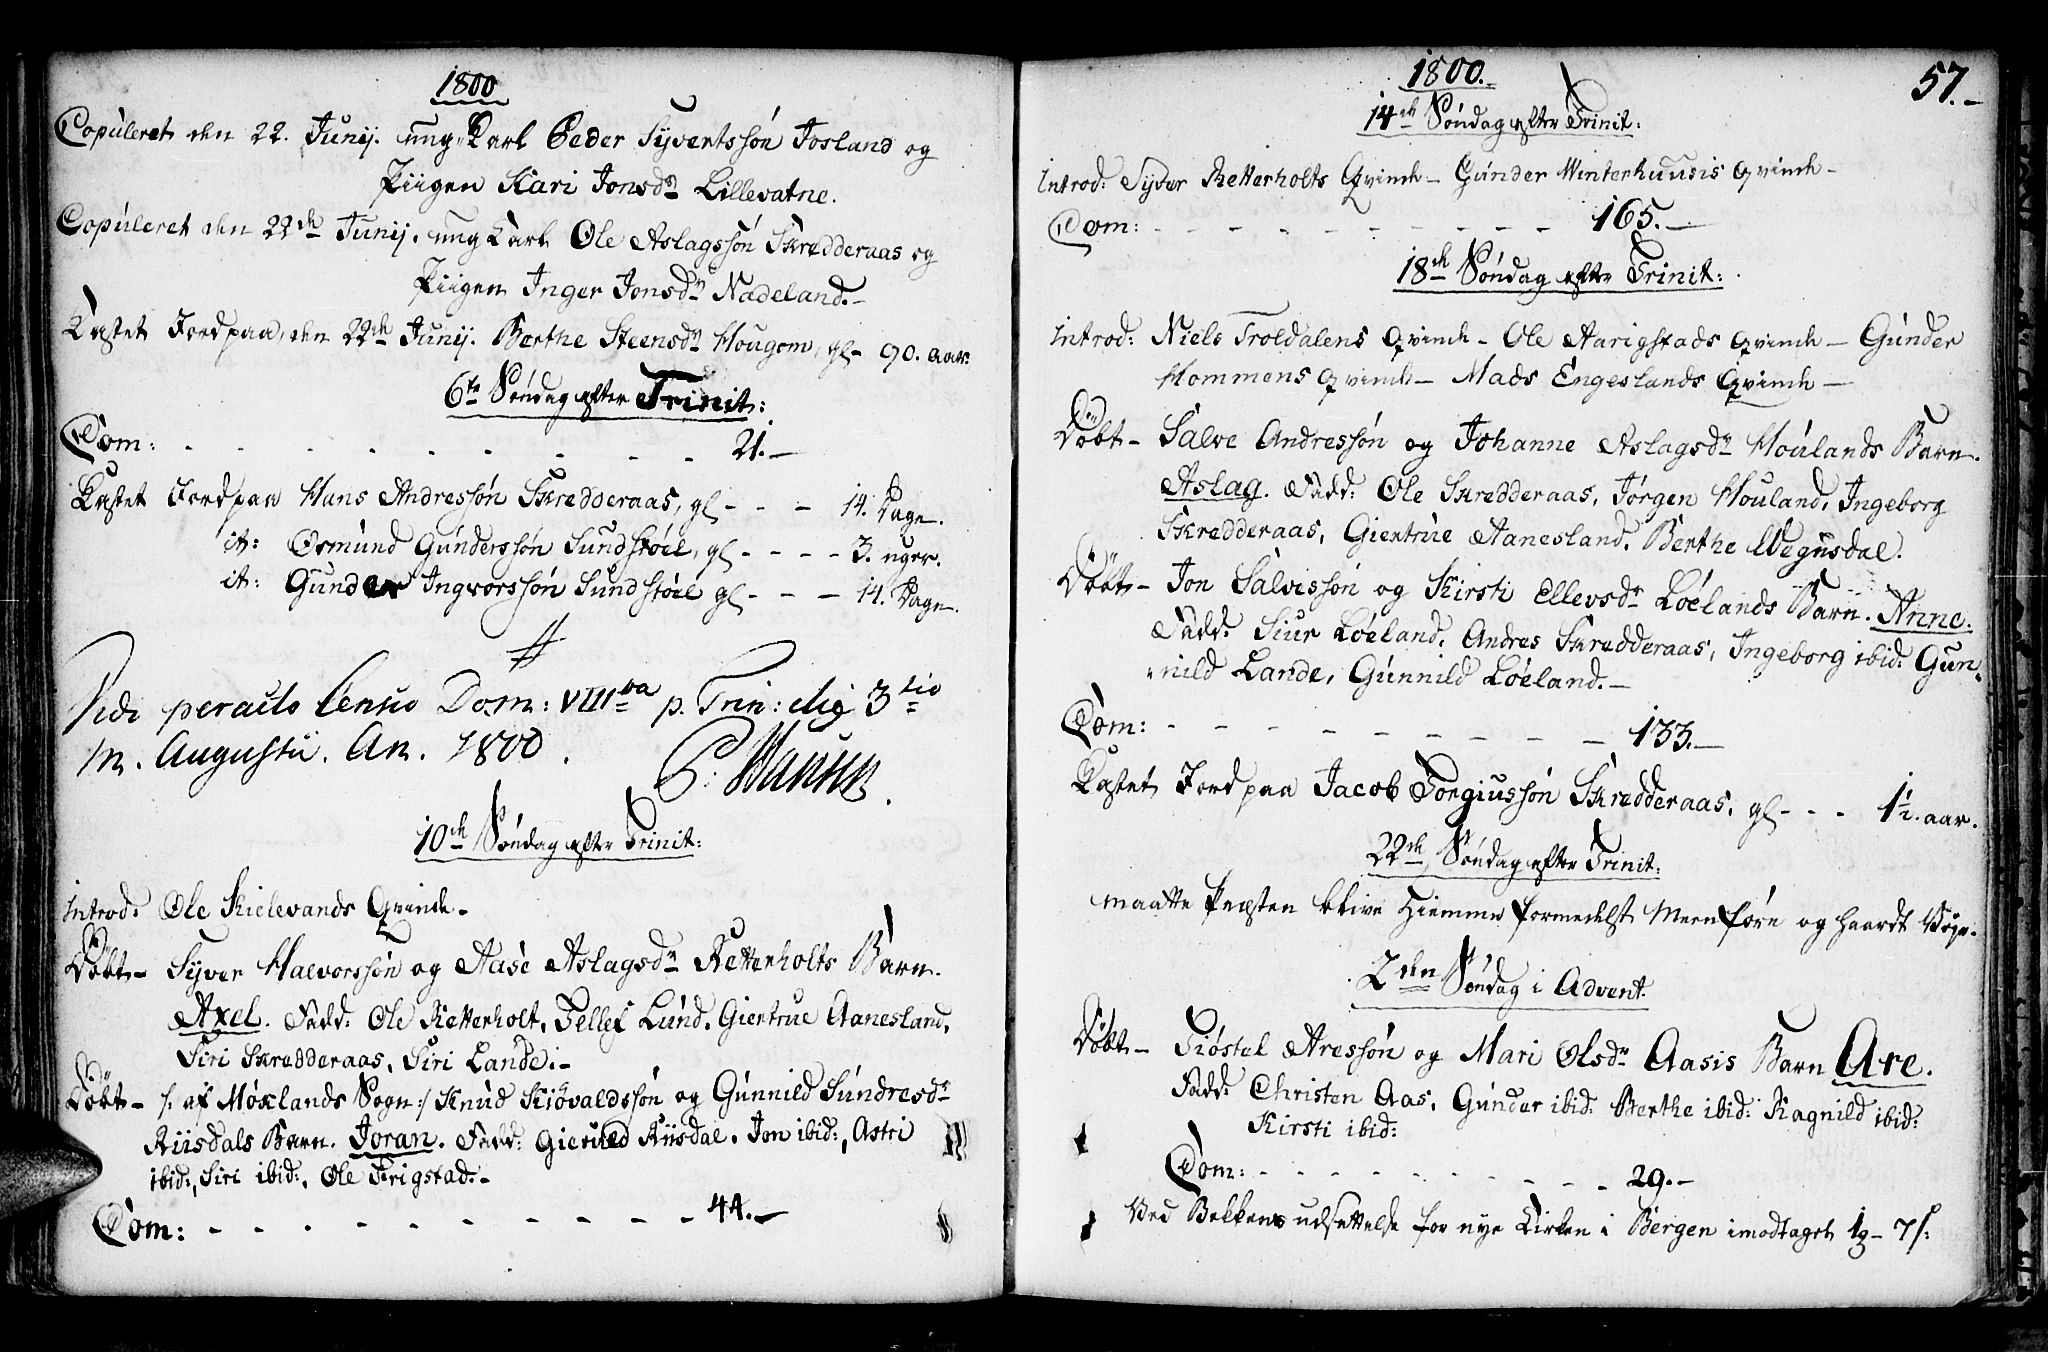 1800
Copuleret den 22. Junij. ung Karl Peder Syvertssøn Josland og
Piigen Kari Jonsdr Lillevatne.
Copuleret den 22de Junij. ung Karl Ole Aslagssøn Skredderaas og
Piigen Inger Jonsdr Nadeland.-
Kastet Jord paa, den 22de Junij. Berthe Steensdr Hougom, gl- 90. aar.
6te Søndag efter Trinit:
Com: - - - - - - - - - 21.-
Kastet Jord paa Hans Andressøn Skredderaas, gl - - - 14. Dage.
it: Osmund Gunderssøn Sundstøel, gl - - - - 3. uger.
it: Gunder Ingvorssøn Sundstøel gl - - - 14. Dage.
Vidi peracto Censio Dom: VIIIva p. Trin: die 3tio
m. Augustii. An. 1800.
P. Hansen.
10de Søndag efter Trinit:
Introd: Ole Kielevands Qvinde-
Døbt- Syver Halvorssøn og Aase Aslagsdr Retterholts Barn.
Axel. Fadd: Ole Retterholt, Tellef Lund, Giertrue Aanesland,
Siri Skredderaas, Siri Lande.-
Døbt- /: af Møklands Sogn:/ Knud Kiøvaldssøn og Gunnild Sundresdr
Riisdals Barn. Joran. Fadd: Gieruld Riisdal, Jon ibid:, Astri
ibid:, Siri ibid:, Ole Frigstad.-
Com: - - - - - - - - - 44.-
1800.
57.-
14de Søndag efter Trinit:
Introd: Syver Retterholts Qvinde- Gunder Winterhuusis Qvinde-
Com: - - - - - - - - - 165.-
18de Søndag efter Trinit:
Introd: Niels Troldalens Qvinde- Ole Aarigstads Qvinde- Gunder
Hommens Qvinde- Mads Engeslands Qvinde-
Døbt- Salve Andressøn og Johanne Aslagsdr Houlands Barn.
Aslag. Fadd: Ole Skredderaas, Jørgen Houland, Ingeborg
Skredderaas, Giertrue Aanesland, Berthe Wegusdal.
Døbt- Jon Salvissøn og Kirsti Ellevsdr Løelands Barn. Anne.
Fadd: Siur Løeland, Andres Skredderaas, Ingeborg ibid: Gun-
nild Lande, Gunnild Løeland.-
Com: - - - - - - - - - 133.-
Kastet Jord paa Jacob Torgiussøn Skredderaas, gl- - - 1½. aar.
22de Søndag efter Trinit:
maatte Præsten blive Hiemme formedelst Meenføre og haardt Veyr.
2den Søndag i Advent.
Døbt- Tiøstel Aressøn og Mari Olsdr Aasis Barn Are.
Fadd: Christen Aas, Gunder ibid: Berthe ibid: Ragnild ibid:
Kirsti ibid:
Com: - - - - - - - - - 29.-
Ved Bekkens udsættelse for nye Kirken i Bergen imodtaget 1 7 s: